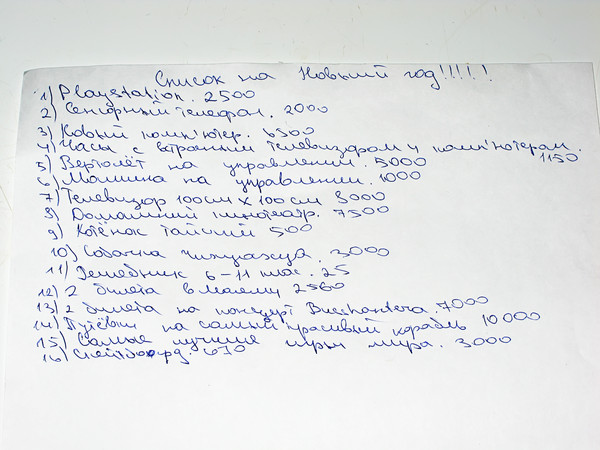 Список на Новый год!!!!!
1) Playstation. 2500
2) Сенсорный телефон. 2000
3) Новый комп'ютер. 6500
4) Часы с встроенным телевизором и комп'ютером. 1150
5) Вертолёт на управлении. 5000
6) Машинка на управлении. 1000
7) Телевизор 100см х 100см 8000
8) Домашний кинотеатр. 7500
9) Котёнок тайский 500
10) Собачка чихуахуа. 3000
11) 6-11 клас. 25
12) 2 билета в 2560
13) 2 билета на концерт 7000
14) Путёвки на самый красивый корабль 10000
15) Самые лучшие игры мира. 3000
16) Скейтборд. 670